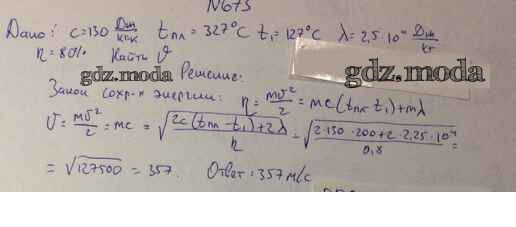 N673
Дано: c=130 Дж/кг·К tпл = 327°C t₁=127°C λ=2,5·10⁴ Дж/кг
η=80% Найти υ
gdz.moda
gdz.moda
Решение:
Закон сохр-я энергии: η = mυ²/2 = mc(tпл - t₁)+mλ
υ = mυ²/2 = mc = √(2c(tпл - t₁)+2λ / η) = √(2·130·200+2·2,25·10⁴ / 0,8) =
= √127500 = 357. Ответ: 357 м/с